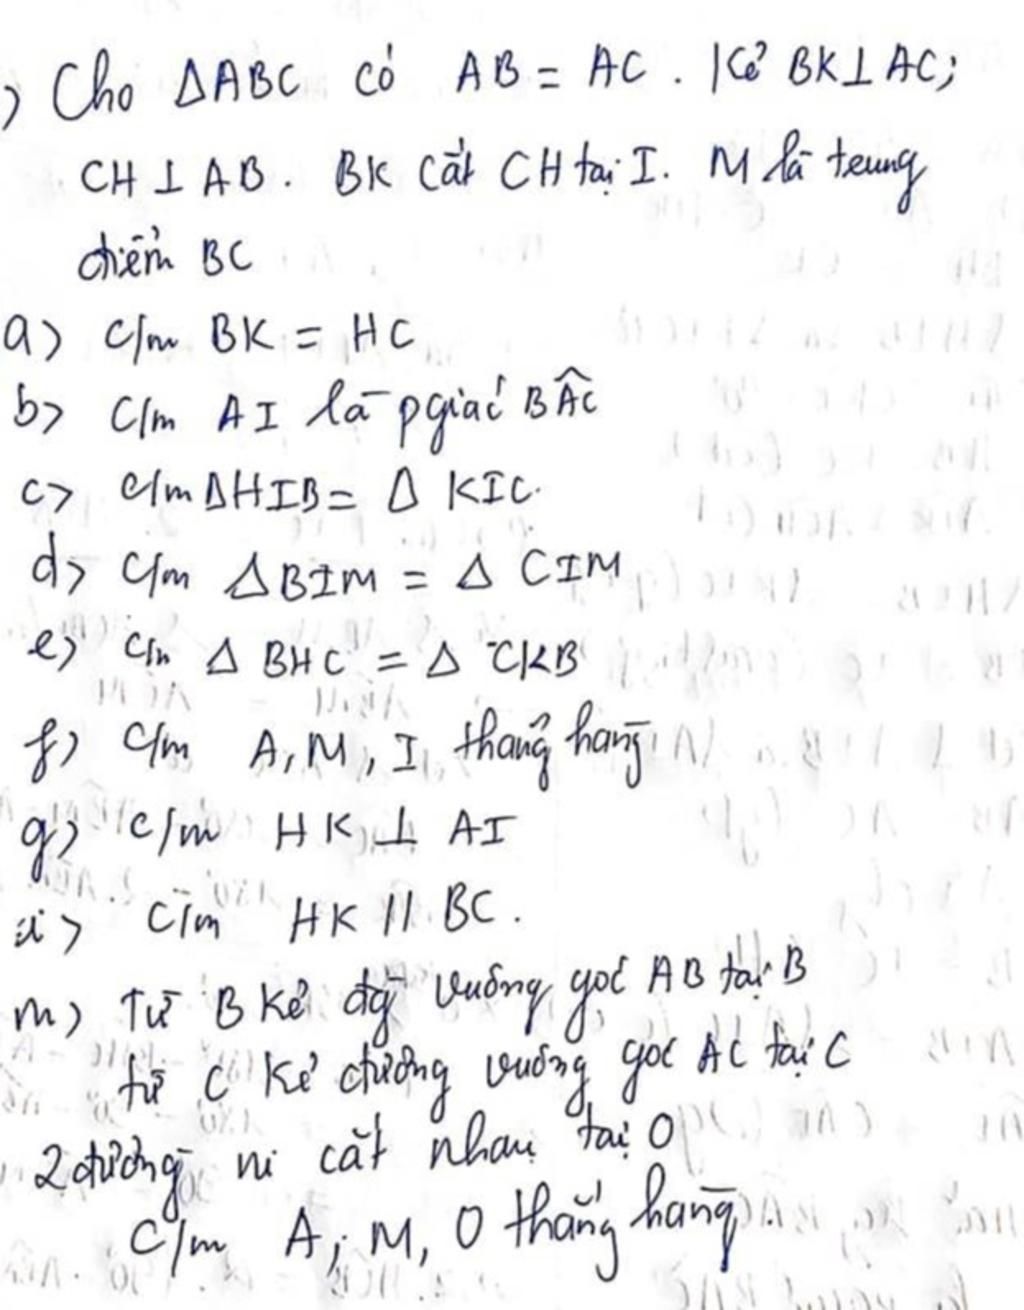 ) Cho ΔABC có AB = AC. Kẻ BK⊥AC;
CH⊥AB. BK cắt CH tại I. M là trung
điểm BC
a) c/m BK = HC
b) c/m AI là pgiác BÂC
c) c/m ΔHIB = Δ KIC.
d) c/m ΔBIM = Δ CIM
e) c/m Δ BHC = Δ CKB
f) c/m A, M, I thẳng hàng
g) c/m HK ⊥ AI
i) c/m HK // BC.
m) Từ B kẻ đg vuông góc AB tại B
từ C kẻ đường vuông góc AC tại C
2 đường ni cắt nhau tại O
C/m A, M, O thẳng hàng.